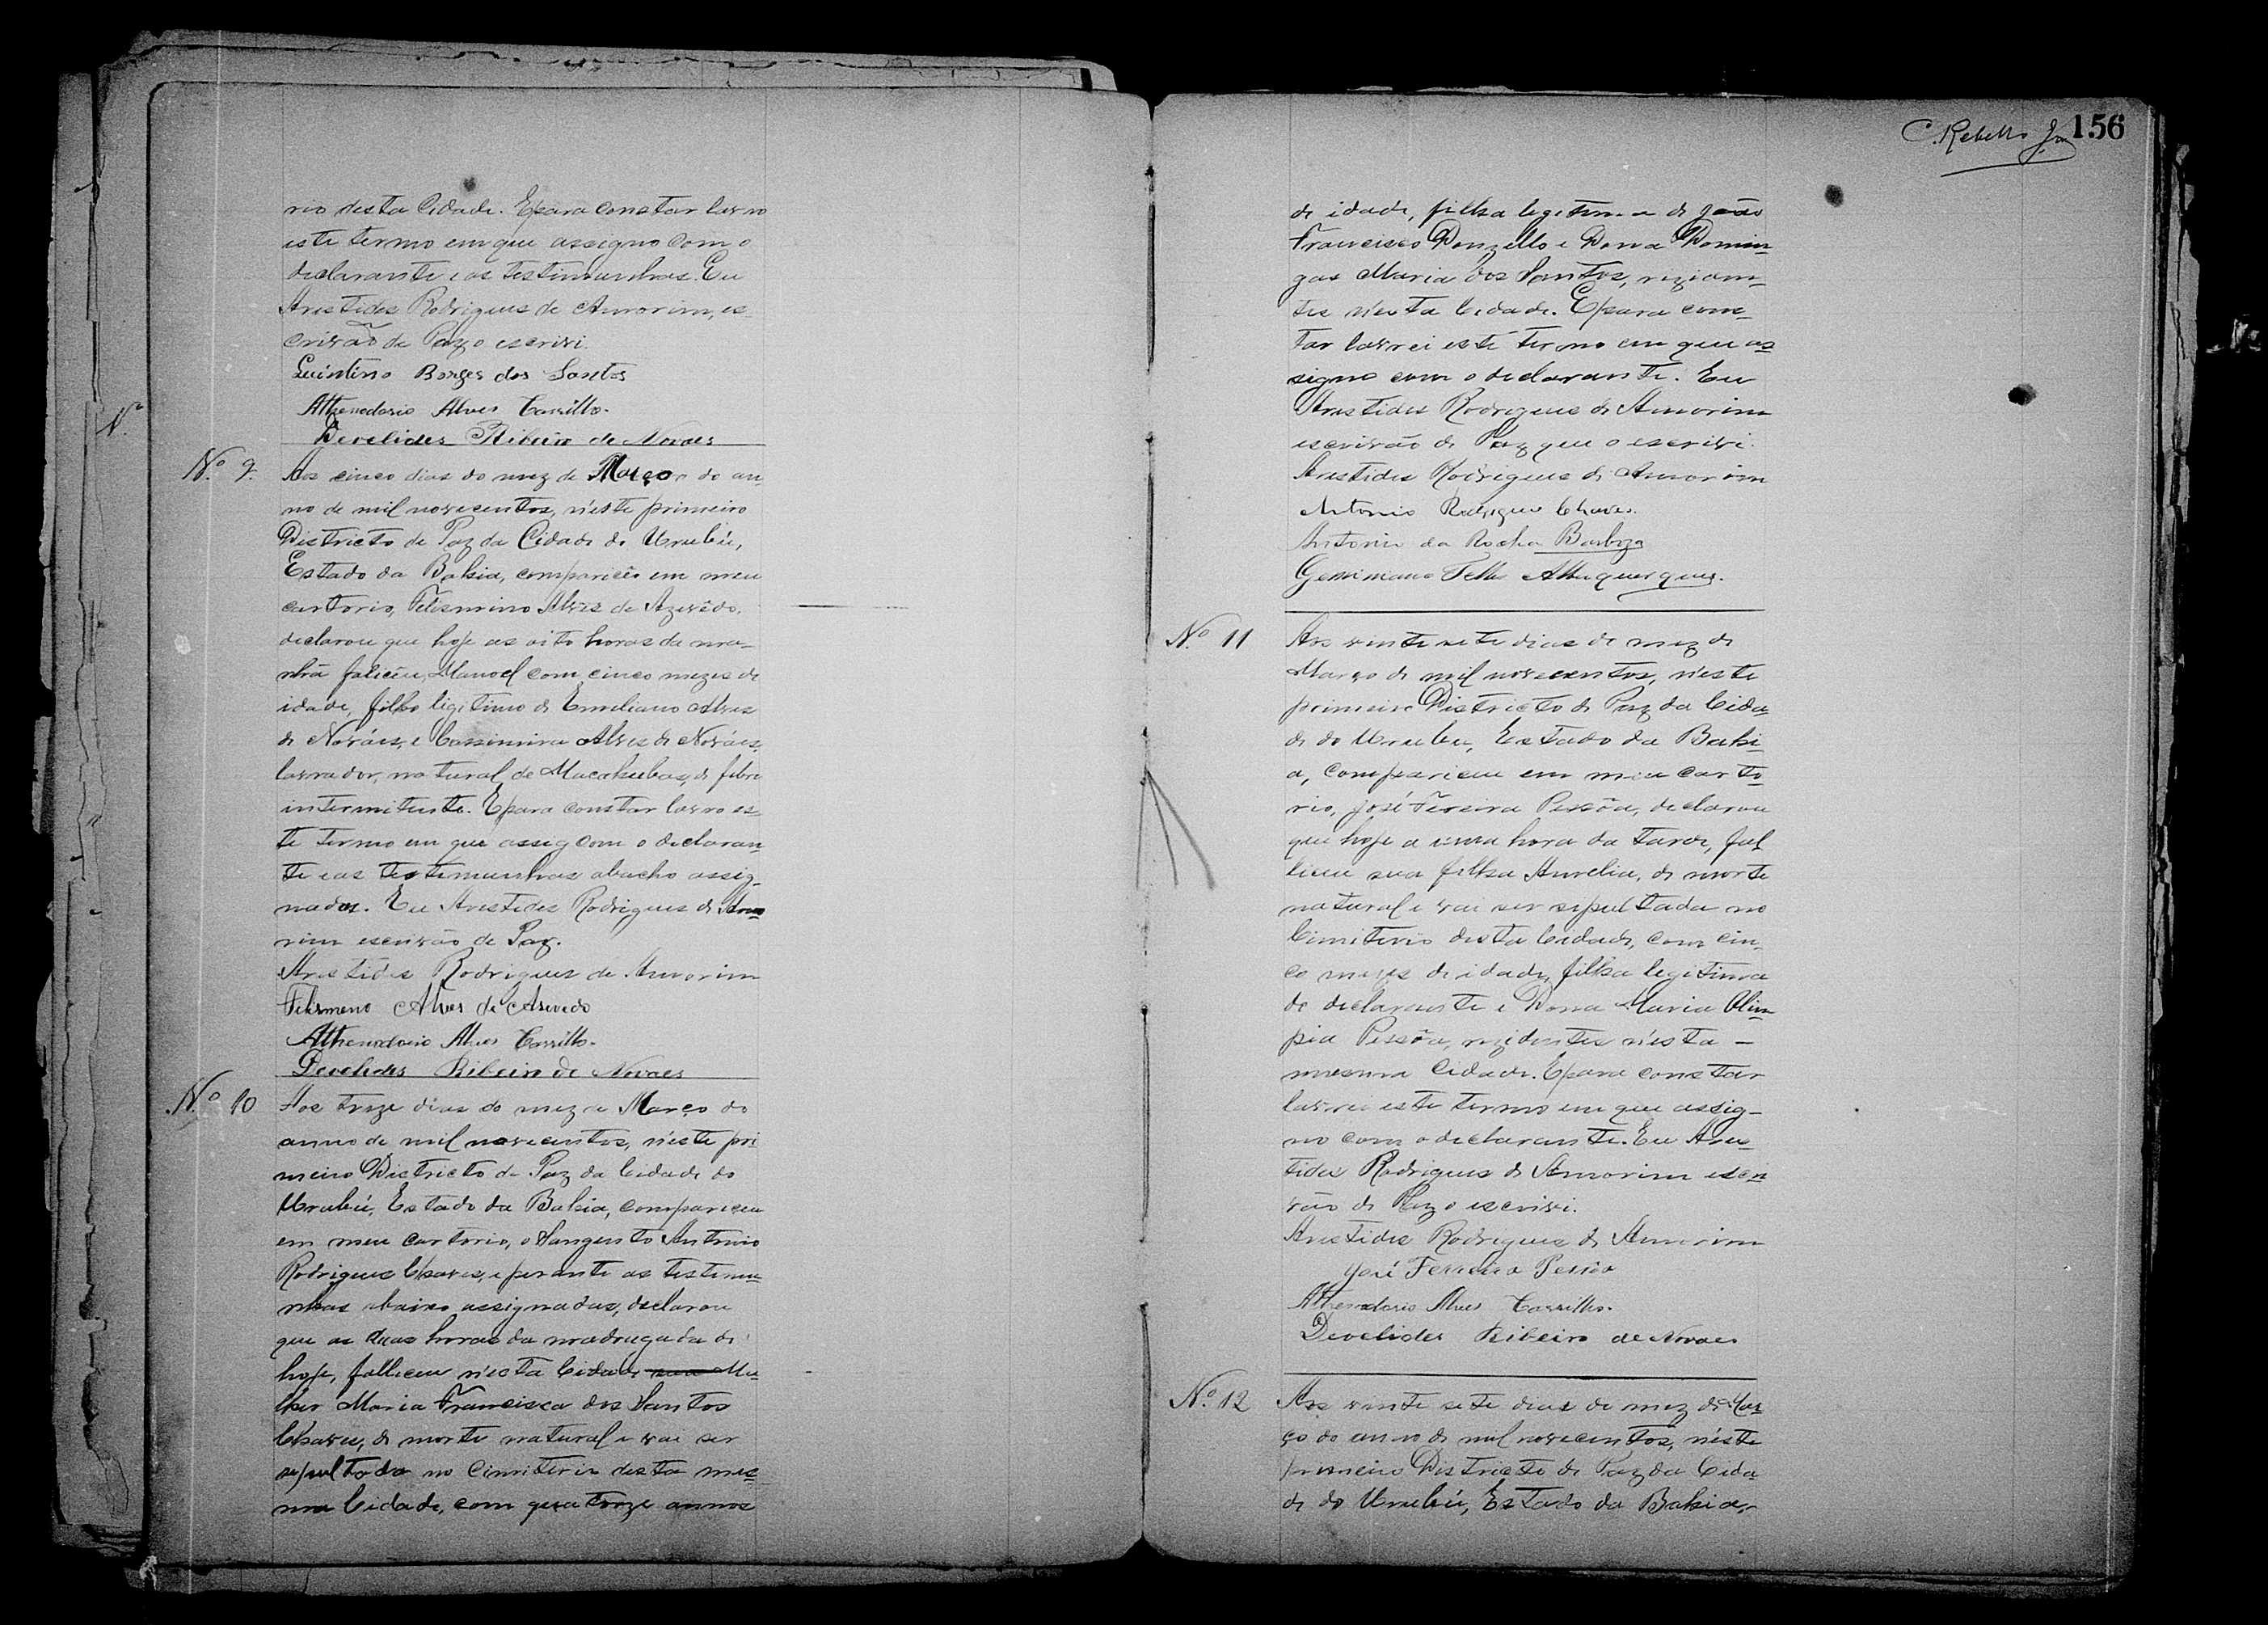 rio desta Cidade. E para constar lavro
este termo em que assigno com o
declarante e as testimunhas. Eu
Aristides Rodrigues de Amorim, es
crivão de Paz o escrivi.
Quintino Borges dos Santos
Athenodorio Alves Carrilho.
Develides Ribeiro de Novaes
Nº 9. Aos cinco dias do mez de Março do an
no de mil novecentos, n'este primeiro
Districto de Paz da Cidade do Urubú,
Estado da Bahia, compariceo em meu
cartorio, Felismino Alves de Azevêdo,
declarou que hoje as oito horas da ma-
nhã faliceu, Manoel com cinco mezes de
idade, filho ligitimo de Emiliano Alves
de Nováes, e Cassimira Alves de Nováes,
lavrador, natural de Macahubas, de febre
intermitente. E para constar lavro es-
te termo em que assig com o declaran
te e as testimunhas abacho assig-
nados. Eu Aristides Rodrigues de Amo
rim escrivão de Paz.
Aristides Rodrigues de Amorim
Felismeno Alves de Asevedo
Athenodorio Alves Carrilho.
Develides Ribeiro de Novaes
Nº 10 Aos treze dias do mez de Março do
anno de mil novecentos, n'este pri
meiro Districto de Paz da Cidade do
Urubú, Estado da Bahia, compariceu
em meu cartorio, o Sargento Antonio
Rodrigues Chaves, e perante as testimu
nhas abaixo assignadas, declarou
que as duas horas da madrugada de
hoje, falliceu n'esta Cidade sua Mu
lher Maria Francisca dos Santos
Chaves, de morte natural e vai ser
sepultada no Cimiterio desta mes
ma Cidade, com quatorze annos
C. Rebello Jor 156
de idade, filha legitima de João
Francisco Donzello e Dona Domin
gas Maria dos Santos, reziden-
tes n'esta Cidade. E para cons-
tar lavrei este termo em que as
signo com o declarante. Eu
Aristides Rodrigues de Amorim
escrivão de Paz que o escrivi.
Aristides Rodrigues de Amorim
Antonio Rodrigues Chaves.
Antonio da Rocha Barboza
Geminiano Telles Albuquerque.
Nº 11 Aos vinte sete dias do mez de
Março de mil novecentos, n'este
primeiro Districto de Paz da Cida
de do Urubu, Estado da Bahi
a, compariceu em meu carto
rio, José Fereira Pessôa, declarou
que hoje a uma hora da tarde, fal
liceu sua filha Aurelia, de morte
natural e vai ser sepultada no
Cimiterio desta Cidade, com cin
co mezes de idade, filha legitima
do declarante e Dona Maria Olim
pia Pessôa, rezidentes n'esta -
mesma Cidade. E para constar
lavrei este termo em que assig-
no com o declarante. Eu Aris-
tides Rodrigues de Amorim escri
vão de Paz o escrivi.
Aristides Rodrigues de Amorim
José Ferreira Pessôa
Athenodorio Alves Carrilho.
Develides Ribeiro de Novaes
Nº 12 Aos vinte sete dias do mez de Mar
ço do anno de mil novecentos, n'este
primeiro Districto de Paz da Cida
de do Urubú, Estado da Bahia,